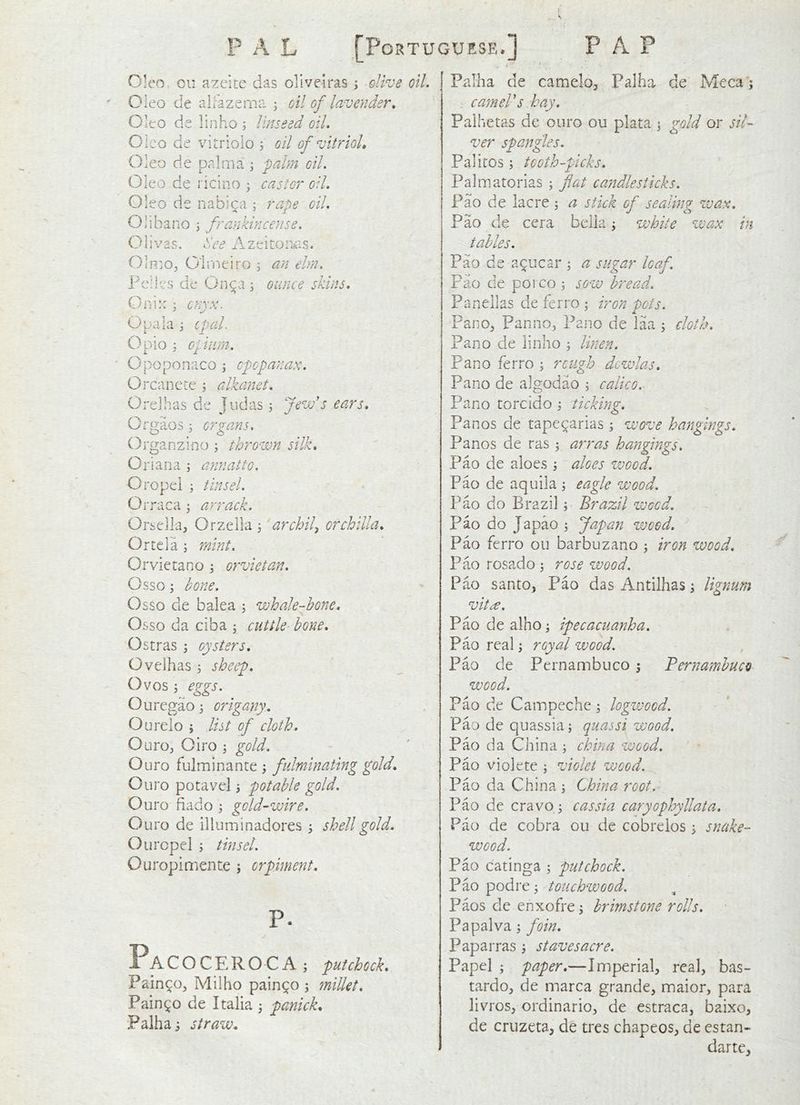 PAL [PORTUGUESE.] PAP
Oleo, ou azeite das oliveiras ; olive oil.
Oleo de alfazema ; oil of lavender.
Oleo de linho ; linseed oil.
Oleo de vitriolo ; oil of vitriol.
Oleo de palma ; palm oil.
Oleo de ricino ; castor oil.
Oleo de nabiça ; rape oil.
Olibano ; frankincense.
Olivas. See Azeitonas.
Olmo, Olmeiro ; an elm.
Pelles de Onça ; ounce skins.
Onix ; onyx.
Opala ; opal.
Opio ; opium.
Opoponaco ; opopanax.
Orcanete ; alkanet.
Orelhas de Judas ; Jew's ears.
Orgãos ; organs.
Organzino ; thrown silk.
Oriana ; annatto.
Oropel ; tinsel.
Orraca ; arrack.
Orsella, Orzella ; archil, orchilla.
Ortelã ; mint.
Orvietano ; orvietan.
Osso ; bone.
Osso de balea ; whale-bone.
Osso da ciba ; cuttle bone.
Ostras ; oysters.
Ovelhas ; sheep.
Ovos ; eggs.
Ouregão ; origany.
Ourelo ; list of cloth.
Ouro, Oiro ; gold.
Ouro fulminante ; fulminating gold.
Ouro potavel ; potable gold.
Ouro fiado ; gold-wire.
Ouro de illuminadores ; shell gold.
Ouropel ; tinsel.
Ouropimente ; orpiment.
P.
PACOCEROCA ; putchock.
Painço, Milho painço ; millet.
Painço de Italia ; panick.
Palha ; straw.
Palha de camelo, Palha de Meca ;
camel's hay.
Palhetas de ouro ou plata ; gold or sil-
ver spangles.
Palitos ; tooth-picks.
Palmatorias ; flat candlesticks.
Pão de lacre ; a stick of sealing wax.
Pão de cera bella ; white wax in
tables.
Pão de açucar ; a sugar loaf.
Pão de porco ; sow bread.
Panellas de ferro ; iron pots.
Pano, Panno, Pano de lãa ; cloth.
Pano de linho ; linen.
Pano ferro ; rough dowlas.
Pano de algodão ; calico.
Pano torcido ; ticking.
Panos de tapeçarias ; wove hangings.
Panos de ras ; arras hangings.
Páo de aloes ; aloes wood.
Páo de aquila ; eagle wood.
Páo do Brazil ; Brazil wood.
Páo do Japão ; Japan wood.
Páo ferro ou barbuzano ; iron wood.
Páo rosado ; rose wood.
Páo santo, Páo das Antilhas ; lignum
vitæ.
Páo de alho ; ipecacuanha.
Páo real ; royal wood.
Páo de Pernambuco ; Pernambuco
wood.
Páo de Campeche ; logwood.
Páo de quassia ; quassi wood.
Páo da China ; china wood.
Páo violete ; violet wood.
Páo da China ; China root.
Páo de cravo ; cassia caryophyllata.
Páo de cobra ou de cobrelos ; snake-
wood.
Páo catinga ; putchock.
Páo podre ; touchwood.
Páos de enxofre ; brimstone rolls.
Papalva ; foin.
Paparras ; stavesacre.
Papel ; paper.—Imperial, real, bas-
tardo, de marca grande, maior, para
livros, ordinario, de estraca, baixo,
de cruzeta, de tres chapeos, de estan-
darte,